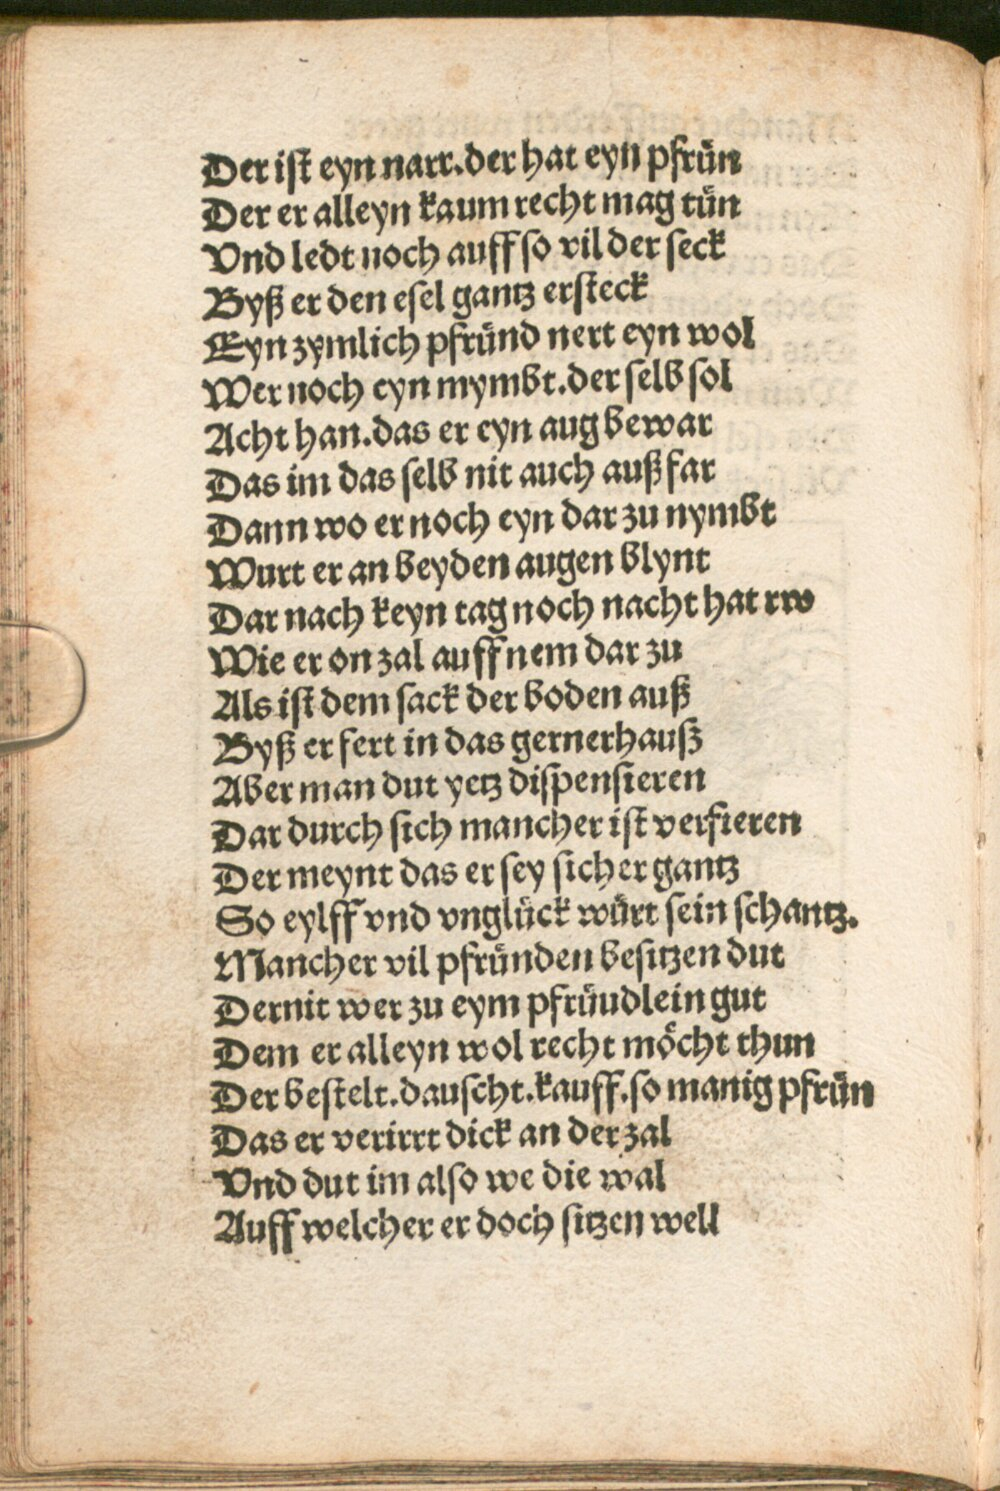 Der ist eyn narr.der hat eyn pfrün
Der er alleyn kaum recht mag tün
Vnd ledt noch auff so vil der seck
Byß er den esel gantz ersteck
Eyn zymlich pfründ nert eyn wol
Wer noch eyn nymbt.der selb sol
Acht han.das er eyn aug bewar
Das im das selb nit auch auß far
Dann wo er noch eyn dar zu nymbt
Wurt er an beyden augen blynt
Dar nach keyn tag noch nacht hat rw
Wie er on zal auff nem dar zu
Als ist dem sack der boden auß
Byß er fert in das gernerhauß
Aber man dut yetz dispensieren
Dar durch sich mancher ist verfieren
Der meynt das er sey sicher gantz
So eylff vnd vnglück würt sein schantz.
Mancher vil pfründen besitzen dut
Der nit wer zu eym pfrüudlein gut
Dem er alleyn wol recht möcht thun
Der bestelt.dauscht.kauff.so manig pfrün
Das er verirrt dick an der zal
Vnd dut im also we die wal
Auff welcher er doch sitzen well